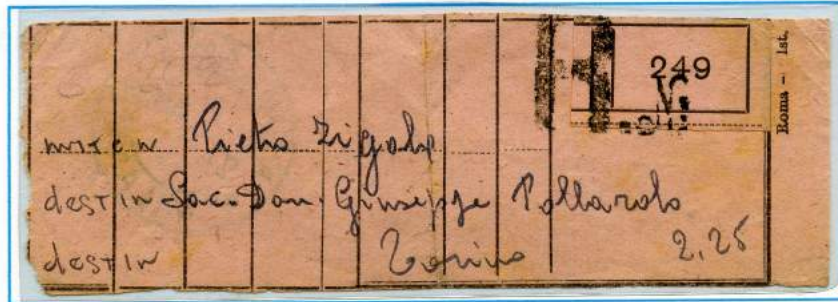 249
Roma - Ist.
mitten Pietro Zigale
destin Sac. Don. Giuseppe Pollarolo
destin Torino 2,25